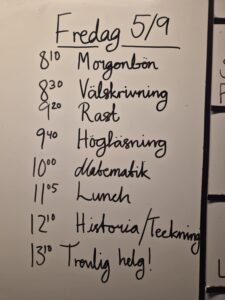 Fredag 5/9
8¹⁰ Morgonbön
8³⁰ Välskrivning
9²⁰ Rast
9⁴⁰ Högläsning
10⁰⁰ Matematik
11⁰⁵ Lunch
12¹⁰ Historia/Teckning
13¹⁰ Trevlig helg!